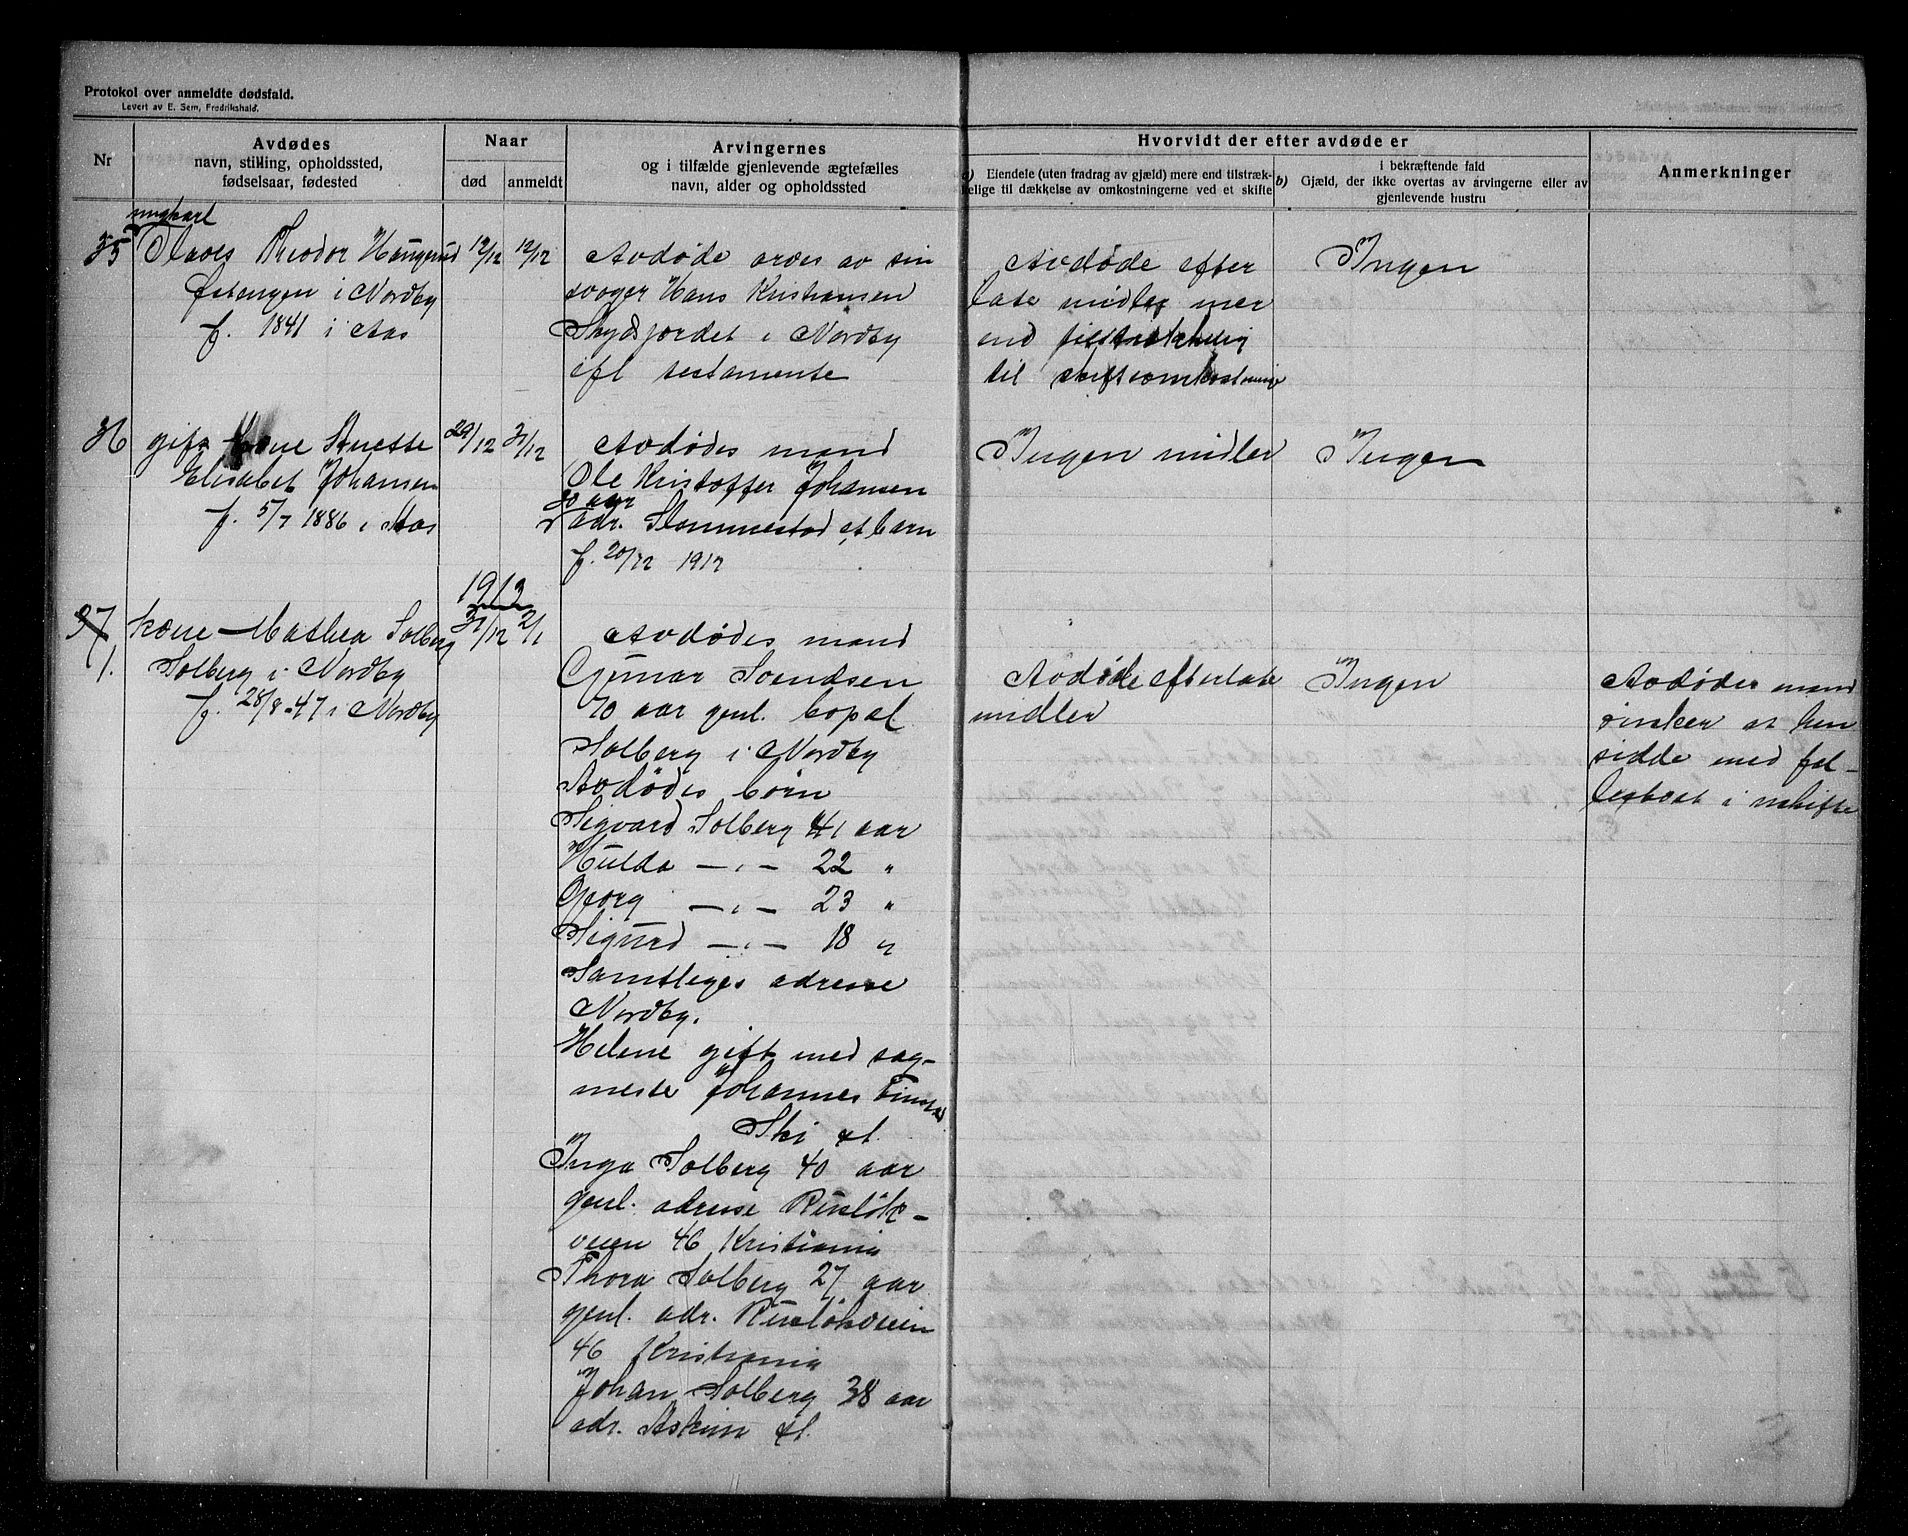 Protokol over anmeldte dødsfald.
Levert av E. Sem, Fredrikshald.
Nr
Avdødes
navn, stilling, opholdssted,
fødselsaar, fødested
Naar
død
anmeldt
Arvingernes
og i tilfælde gjenlevende ægtefælles
navn, alder og opholdssted
Hvorvidt der efter avdøde er
a) Eiendele (uten fradrag av gjæld) mere end tilstræk-
kelige til dækkelse av omkostningerne ved et skifte
b)
i bekræftende fald
Gjæld, der ikke overtas av arvingerne eller av
gjenlevende hustru
Anmerkninger
ungkarl
35
Theodor Haugerud
i Nordby
f. 1841 i Aas
12/12
12/12
Avdøde arves av sin
svoger Hans Kristiansen
Skydsjordet i Nordby
ifl testamente
Avdøde efter
late midler mer
end tilstrækkelig
til skifteomkostninge
Ingen
36
gift kone Anette
Elisabet Johansen
f. 5/7 1886 i Aas
29/12
31/12
Avdødes mand
Ole Kristoffer Johansen
30 aar
adr. Slemmestad et barn
f. 20/12 1912
Ingen midler
Ingen
1913
37
1.
kone Mathea Solberg
Solberg i Nordby
f. 28/8-47 i Nordby
31/12
2/1
Avdødes mand
Gunnar Svendsen
70 aar genl. bopæl
Solberg i Nordby
Avdødes børn
Sigvard Solberg 41 aar
Hulda — „ — 22 „
Georg — „ — 23 „
Sigurd — „ — 18 „
Samtliges adresse
Nordby.
Helene gift med sag-
mester Johannes Finstad
Ski st.
Inga Solberg 40 aar
genl. adresse Ruseløk-
veien 46 Kristiania
Thora Solberg 27 aar
genl. adr. Ruseløkveien
46 Kristiania
Johan Solberg 38 aar
adr. Askim st.
Avdøde efterlate
midler
Ingen
Avdødes mand
ønsker at hen
sidde med fæl-
lesboet i uskifte